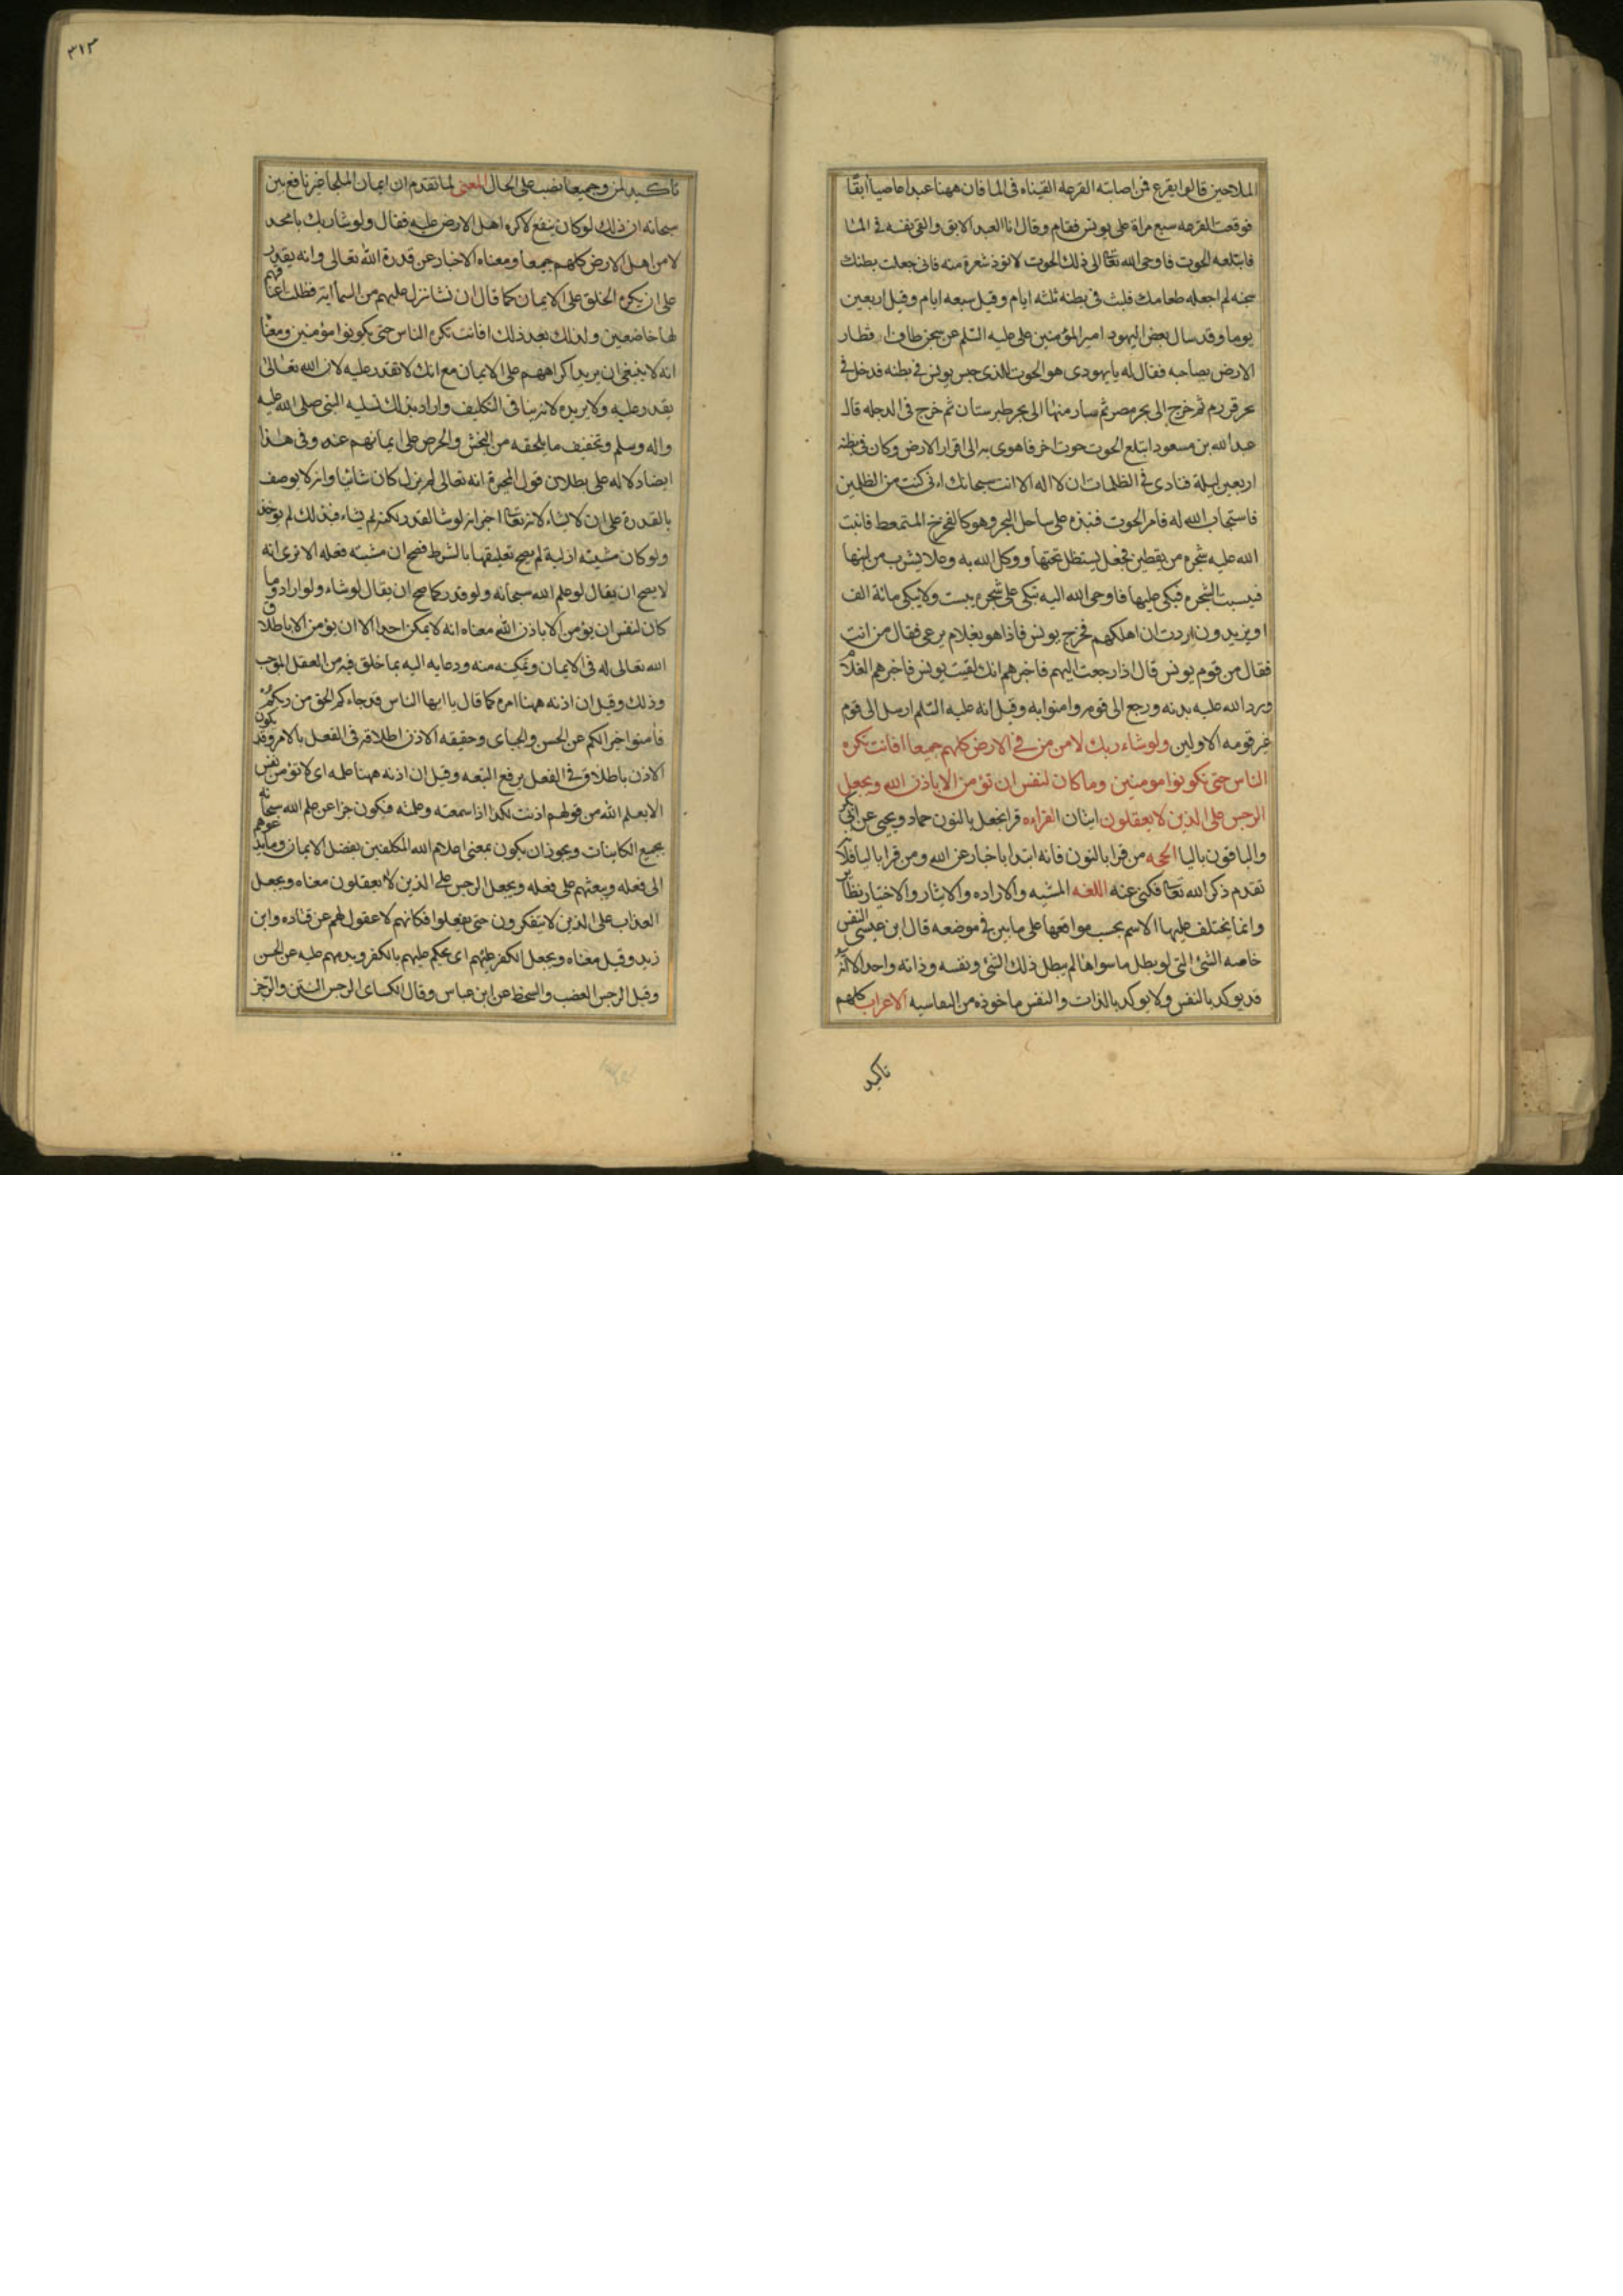 الملاحين قالوا يقرع فمن اصابته القرعه القيناه فى الما فان ههنا عبدا عاصيا ابقًا
فوقعت القرعه سبع مراة على يونس فقام وقال انا العبد الابق والقى نفسه فى الما
فابتلعه الحوت فاوحى الله تعا الى ذلك الحوت لا توذ شعرة منه فانى جعلت بطنك
سجنه لم اجعله طعامك فلبث فى بطنه ثلثه ايام وقيل سبعه ايام وقيل اربعين
يوما وقد سال بعض اليهود امير المؤمنين على عليه السّلم عن سجن طاف اقطار
الارض بصاحبه فقال له يا يهودى هو الحوت الذى حبس يونس فى بطنه فدخل فى
بحر قلزم ثم خرج الى بحر مصر ثم صار منها الى بحر طبرستان ثم خرج فى الدجله قال
عبد الله بن مسعود ابتلع الحوت حوت اخر فاهوى به الى قرار الارض وكان فى بطنه
اربعين ليلة فنادى فى الظلمات ان لا اله الا انت سبحانك انى كنت من الظلمين
فاستجاب الله له فامر الحوت فنبذه على ساحل البحر وهو كالفرخ المتمعط فانبت
الله عليه شجره من يقطين فجعل يستظل تحتها ووكل الله به وعلا يشرب من لبنها
فيبست الشجره فبكى عليها فاوحى الله اليه تبكى على شجره يبست ولا تبكى مائة الف
او يزيدون اردت ان اهلكهم فخرج يونس فاذا هو بغلام يرعى فقال من انت
فقال من قوم يونس قال اذا رجعت اليهم فاخبرهم انك لقيت يونس فاخبرهم الغلام
ورد الله عليه بدنه ورجع الى قومه وامنوا به وقيل انه عليه السّلم ارسل الى قوم
غير قومه الاولين ولو شاء ربك لامن من فى الارض كلهم جميعا افانت تكره
الناس حتى تكونوا مومنين وما كان لنفس ان تؤمن الا باذن الله ويجعل
الرجس على الذين لا يعقلون ايتان القراءه قرا نجعل بالنون حماد ويحيى عن ابى بكر
والباقون باليا الحجه من قرا بالنون فانه ابتدا باخبار عن الله ومن قرا باليا فلانه
تقدم ذكر الله تعا فكنى عنه اللغه المشيه والاراده والايثار والاختيار نظاير
وانما يختلف عليها الاسم بحسب مواقعها على ما بين فى موضعه قال ابن عيسى النفس
خاصه الشئ التى لو بطل ما سواها لم يبطل ذلك الشئ ونفسه وذاته واحد الا انه
قد يوكد بالنفس ولا يوكد بالذات والنفس ماخوذه من النفاسيه الاعراب كلهم
تاكيد
٣١٣
تاكيد لمن وجميعا نصب على الحال المعنى لما تقدم ان ايمان الملجا غير نافع بين
سبحانه ان ذلك لو كان ينفع لاكره اهل الارض عليه فقال ولو شا ربك يا محمد
لامن اهل الارض كلهم جميعا ومعناه الاخبار عن قدرة الله تعالى وانه يقدر
على ان يكره الخلق على الايمان كما قال ان نشا ننزل عليهم من السما اية فظلت اعناقهم
لها خاضعين ولذلك بعد ذلك افانت تكره الناس حتى يكونوا مؤمنين ومعناه
انه لا ينبغى ان يريد اكراههم على الايمان مع انك لا تقدر عليه لان الله تعالى
يقدر عليه ولا يريده لانه ينافى التكليف واراد بذلك تسليه النبى صلى الله عليه
واله وسلم وتخفيف ما يلحقه من التحسّر والحرص على ايمانهم عنه وفى هذا
ايضا دلاله على بطلان قول المجبرة انه تعالى لم يزل كان شائيا وانه لا يوصف
بالقدرة على ان لا يشاء لانه تعا اخبر انه لو شا لقدر لكنه لم يشاء فلذلك لم يوجد
ولو كان مشيته ازلية لم يصح تعليقها بالشرط فصح ان مشيته فعله الا ترى انه
لا يصح ان يقال لو علم الله سبحانه ولو قدر كما صح ان يقال لو شاء ولو اراد وما
كان لنفس ان يؤمن الا باذن الله معناه انه لا يمكن احدا الا ان يؤمن الا باطلاق
الله تعالى له فى الايمان وتمكينه منه ودعايه اليه بما خلق فيه من العقل الموجب
وذلك وقيل ان اذنه ههنا امره كما قال يا ايها الناس قد جاءكم الحق من ربكم
فامنوا خيرا لكم عن الحسن والجباى وحقيقه الاذن اطلاقه فى الفعل بالامر وقد يكون
الاذن باطلاق فى الفعل برفع التبعه وقيل ان اذنه ههنا علمه اى لا تؤمن نفس
الا بعلم الله من قولهم اذنت لكذا اذا سمعته وعلمته فيكون خبرا عن علم الله سبحانه
بجميع الكاينات ويجوز ان يكون بمعنى اعلام الله المكلفين بفضل الايمان وما يدعوهم
الى فعله ويبعثهم على فعله ويجعل الرجس على الذين لا يعقلون معناه ويجعل
العذاب على الذين لا يتفكرون حتى يعقلوا فكانهم لا عقول لهم عن قتاده وابن
زيد وقيل معناه ويجعل الكفر عليهم اى يحكم عليهم بالكفر ويذمهم عليه عن الحسن
وقيل الرجس الغضب والسخط عن ابن عباس وقال الكساى الرجس النتن والرجز